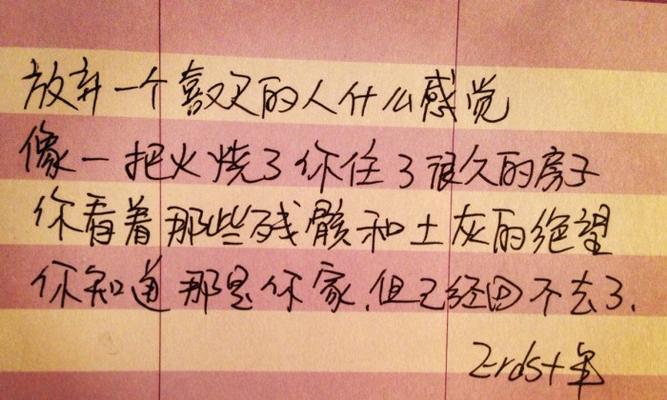 放弃一个喜欢的人什么感觉
像一把火烧了你住了很久的房子
你看着那些残骸和土灰的绝望
你知道那是你家,但已经回不去了.